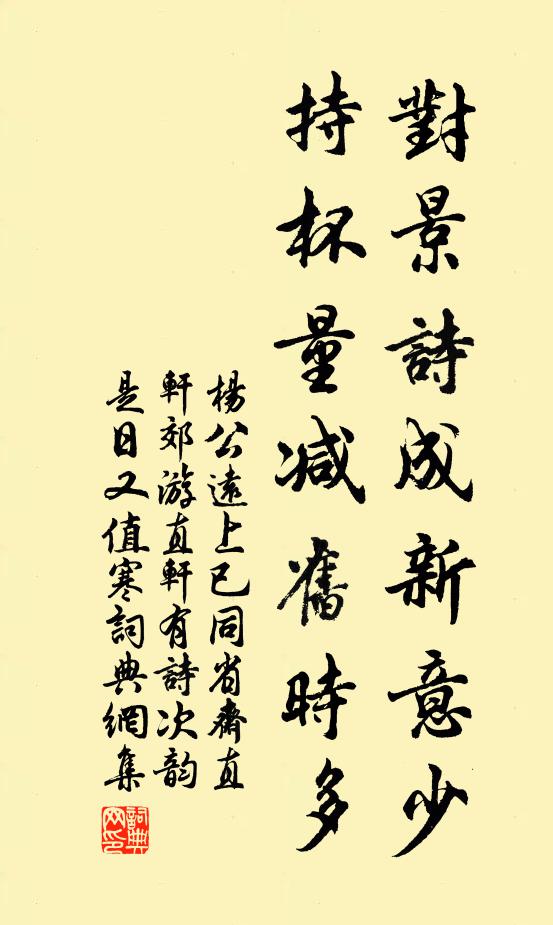 對景詩成新意少
持杯量減舊時多
楊公遠上巳同省齋直
軒郊游直軒有詩次韵
是日又值寒詞典網集
詞典网印